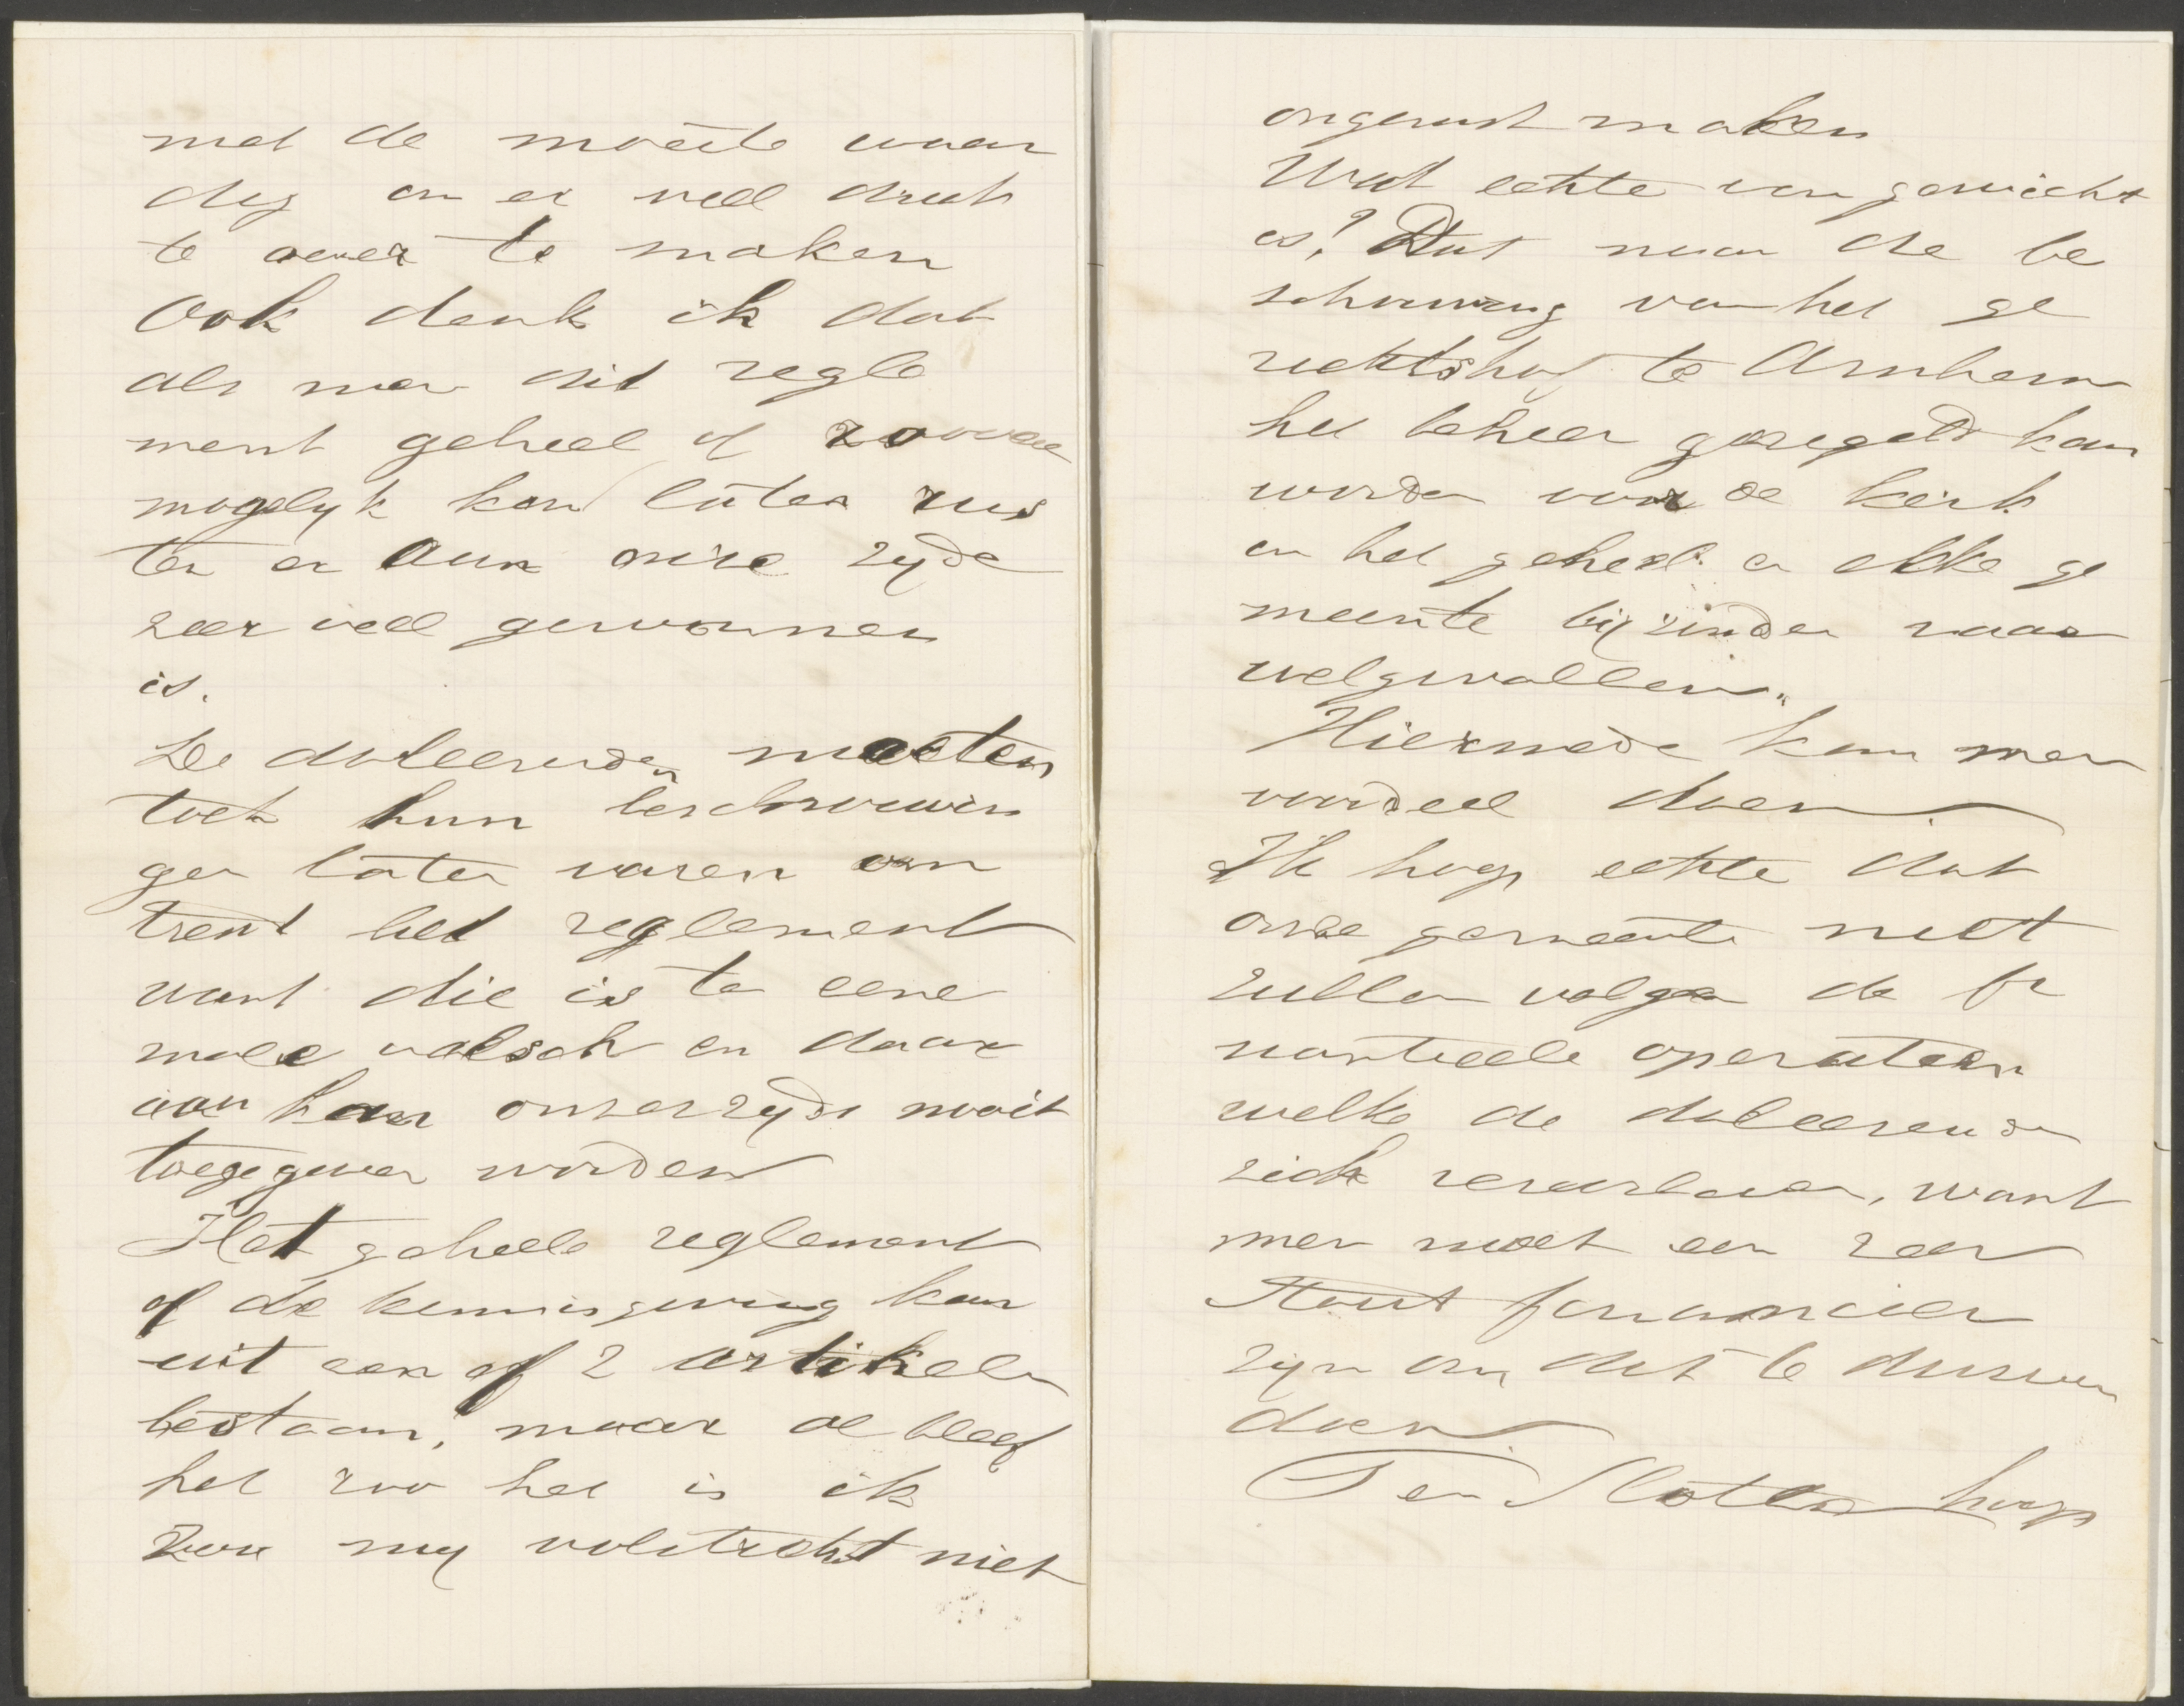 niet de moeite waar
dig om er veel druk
te over te maken
Ook denk ik dat
als men dit regle
ment geheel of zooveel
mogelyk kan laten rus
ten er aan onze zyde
zeer veel gewonnen
is.
De doleerenden moeten
toch hun beschouwin
gen laten varen om
trent het reglement
want die is ten eene
male valsch en daar
aan kan onzerzyds nooit
toegegeven worden
Het geheele reglement
of de kennisgeving kan
uit een of 2 artikelen
bestaan, maar al bleef
het zoo het is ik
zou my volstrekt niet
ongerust maken
Wat echter van gewicht
is? Dat naar de be
schouwing van het ge
rechtshof te Arnhem
het beheer geregeld kan
worden voor de kerk
in het geheel en elke ge
meente bijzonder naar
welgevallen.
Hiermede kan men
voordeel doen
Ik hoop echter dat
onze gemeente niet
zullen volgen de fi
nantieele operatien
welke de doleerenden
zich veroorloven, want
men moet een zeer
stout financier
zyn om dit te durven
doen
Ten Slotte hoop